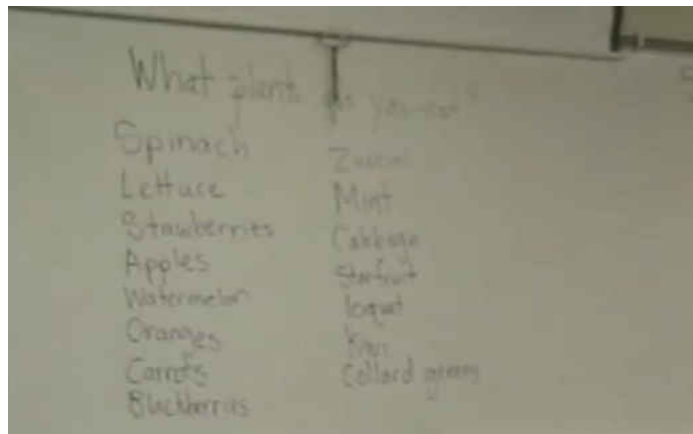 What plants do you eat?
Spinach
Lettuce
Stawberries
Apples
Watermelon
Oranges
Carrots
Blackberries
Mint
Cabbage
Starfruit
loquat
Kiwi
Collard greens